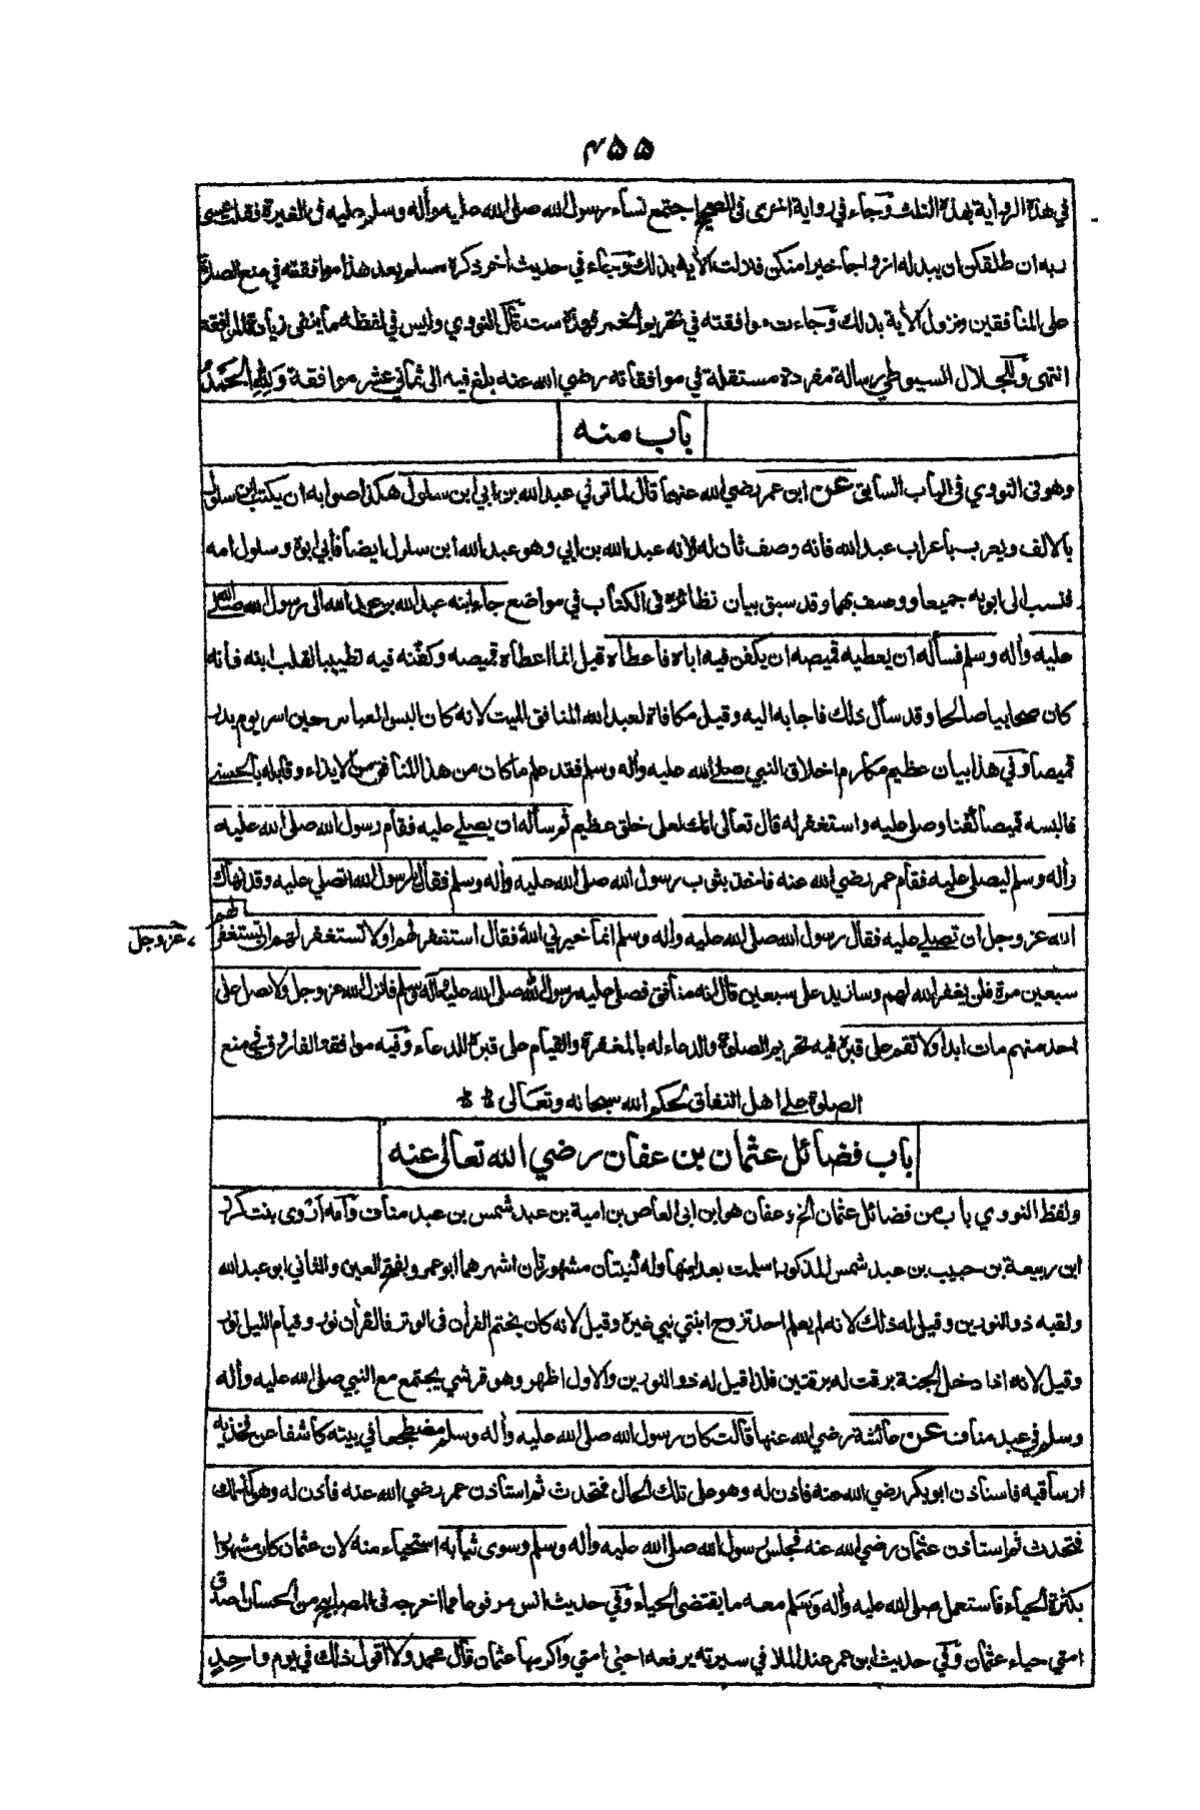 ۴۵۵
في هذة الرواية بهذة الثلث وجاء في رواية اخرى فى الصحيح اجتمع نساء رسول الله صلى الله عليه وأله وسلم عليه فى الغيرة فقلت عسى
ربه ان طلقكن ان يبدله ازواجا خيرا منكن فنزلت الأية بذلك وجاء في حديث أخر ذكرة مسلم بعد هذا موافقته في منع الصلوة
على المنافقين ونزول الأية بذلك وجاءت موافقته في تحريم الخمر فهذة ست قال النووي وليس في لفظه ما ينفى زيادة الموافقة
انتهى وللجلال السيوطي رسالة مفردة مستقلة في موافقاته رضي الله عنه بلغ فيه الى ثماني عشر موافقة ولله الحمد
باب منه
وهو فى النووي فى الباب السابق عن ابن عمر رضي الله عنهما قال لما توفي عبد الله بن ابي ابن سلول هكذا صوابه ان يكتب ابن سلول
بالالف ويعرب باعراب عبد الله فانه وصف ثان له لانه عبد الله بن ابي وهو عبد الله ابن سلول ايضا فأبي ابوة وسلول امه
فنسب الى ابويه جميعا ووصف بهما وقد سبق بيان نظائرة فى الكتاب في مواضع جاء ابنه عبد الله بن عبد الله الى رسول الله صلى الله
عليه وأله وسلم فسأله ان يعطيه قميصه ان يكفن فيه اباه فاعطاه قيل انما اعطاه قميصه وكفنه فيه تطييبا لقلب ابنه فانه
كان صحابيا صالحا وقد سأل ذلك فاجابه اليه وقيل مكافاة لعبد الله المنافق الميت لانه كان البس العباس حين اسر يوم بدر
قميصا وفي هذا بيان عظيم مكارم اخلاق النبي صلى الله عليه وأله وسلم فقد علم ما كان من هذا المنافق من الايذاء وقابله بالحسنى
فالبسه قميصا كفنا وصلى عليه واستغفر له قال تعالى انك لعلى خلق عظيم ثم سأله ان يصلي عليه فقام رسول الله صلى الله عليه
وأله وسلم ليصلي عليه فقام عمر رضي الله عنه فاخذ بثوب رسول الله صلى الله عليه وأله وسلم فقال يارسول الله اتصلي عليه وقد نهاك
الله عز وجل ان تصلي عليه فقال رسول الله صلى الله عليه وأله وسلم انما خيرني الله فقال استغفر لهم اولا تستغفر لهم ان تستغفر لهم
عز وجل
سبعين مرة فلن يغفر الله لهم وسازيد على سبعين قال انه منافق فصلى عليه رسول الله صلى الله عليه وأله وسلم فانزل الله عز وجل ولا تصل على
احد منهم مات ابدا ولا تقم على قبرة فيه تحريم الصلوة والدعاء له بالمغفرة والقيام على قبرة للدعاء وفيه موافقة الفاروق في منع
الصلوة على اهل النفاق لحكم الله سبحانه وتعالى
باب فضائل عثمان بن عفان رضي الله تعالى عنه
ولفظ النووي باب من فضائل عثمان الخ وعفان هو ابن ابى العاص بن امية بن عبد شمس بن عبد مناف وأمه أروى بنت كرز
ابن ربيعة بن حبيب بن عبد شمس المذكور اسلمت بعد ابنها وله كنيتان مشهورتان اشهرهما ابو عمرو بفتح العين والثاني ابو عبد الله
ولقبه ذو النورين وقيل له ذلك لانه لم يعلم احد تزوج ابنتي نبي غيرة وقيل لانه كان يختم القرأن فى الوتر فالقرأن نور وقيام الليل نور
وقيل لانه اذا دخل الجنة برقت له برقتين فلذا قيل له ذو النورين والاول اظهر وهو قرشي يجتمع مع النبي صلى الله عليه وأله
وسلم في عبد مناف عن عائشة رضي الله عنها قالت كان رسول الله صلى الله عليه وأله وسلم مضطجعا في بيته كاشفا عن فخذيه
او ساقيه فاستاذن ابو بكر رضي الله عنه فاذن له وهو على تلك الحال فتحدث ثم استأذن عمر رضي الله عنه فأذن له وهو كذلك
فتحدث ثم استاذن عثمان رضي الله عنه فجلس رسول الله صلى الله عليه وأله وسلم وسوى ثيابه استحياء منه لان عثمان كان مشهورا
بكثرة الحياء فاستعمل صلى الله عليه وأله وسلم معه ما يقتضى الحياء وفي حديث انس مرفوعا مما اخرجه فى المصابيح من الحسان اصدق
امتي حياء عثمان وفي حديث ابن عمر عند الملا في سيرته يرفعه احيى امتي واكرمها عثمان قال محمد ولا اقول ذلك في يوم واحد